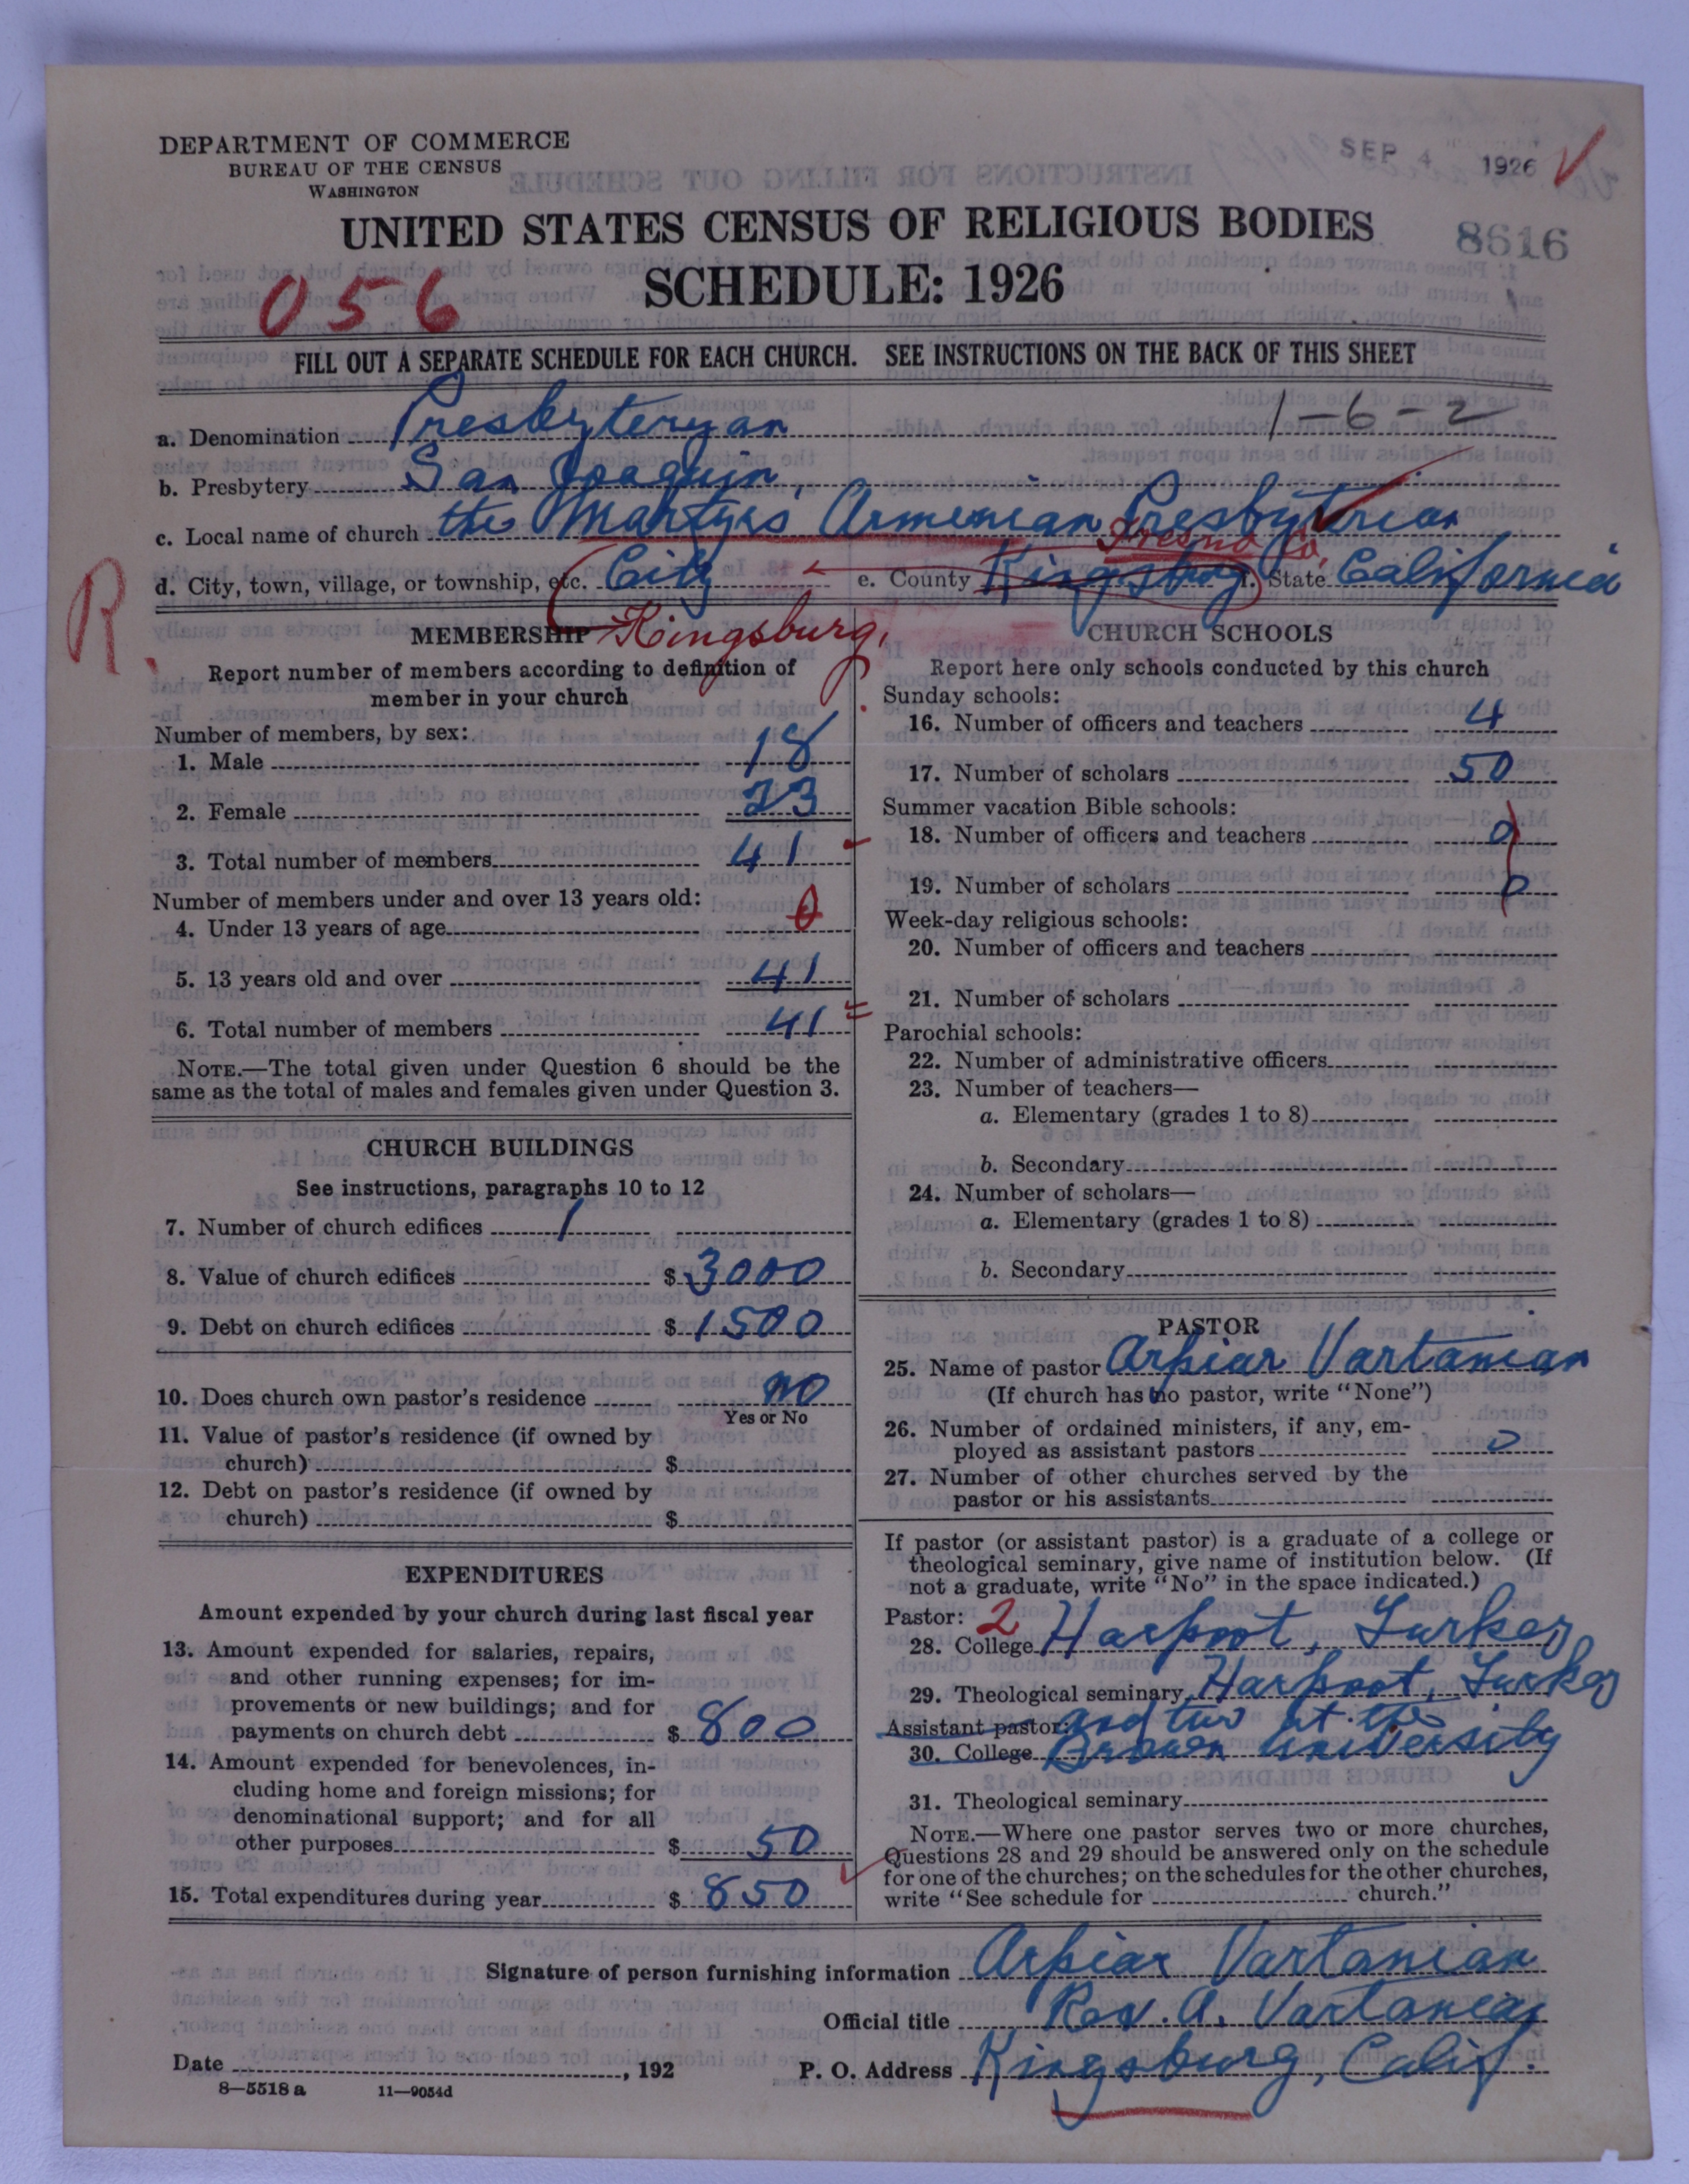 DEPARTMENT OF COMMERCE
BUREAU OF THE CENSUS
WASHINGTON
SEP 4 1926
UNITED STATES CENSUS OF RELIGIOUS BODIES
8616
SCHEDULE: 1926
056
FILL OUT A SEPARATE SCHEDULE FOR EACH CHURCH. SEE INSTRUCTIONS ON THE BACK OF THIS SHEET
1-6-2
a. Denomination Presbyteryan
b. Presbytery San Joaquin,
c. Local name of church the Martyrs Armenian Presbyterian
Fresno Co.
d. City, town, village, or township, etc. City e. County Kingsburg f. State California
R.
MEMBERSHIP Kingsburg,
Report number of members according to definition of
member in your church
Number of members, by sex:
1. Male 18
2. Female 23
3. Total number of members 41
Number of members under and over 13 years old:
4. Under 13 years of age 0
5. 13 years old and over 41
6. Total number of members 41
NOTE.—The total given under Question 6 should be the
same as the total of males and females given under Question 3.
CHURCH BUILDINGS
See instructions, paragraphs 10 to 12
7. Number of church edifices 1
8. Value of church edifices $ 3000
9. Debt on church edifices $ 1500
10. Does church own pastor's residence no
Yes or No
11. Value of pastor's residence (if owned by
church) $
12. Debt on pastor's residence (if owned by
church) $
EXPENDITURES
Amount expended by your church during last fiscal year
13. Amount expended for salaries, repairs,
and other running expenses; for im-
provements or new buildings; and for
payments on church debt $ 800
14. Amount expended for benevolences, in-
cluding home and foreign missions; for
denominational support; and for all
other purposes $ 50
15. Total expenditures during year $ 850
CHURCH SCHOOLS
Report here only schools conducted by this church
Sunday schools:
16. Number of officers and teachers 4
17. Number of scholars 50
Summer vacation Bible schools:
18. Number of officers and teachers 0
19. Number of scholars 0
Week-day religious schools:
20. Number of officers and teachers
21. Number of scholars
Parochial schools:
22. Number of administrative officers
23. Number of teachers—
a. Elementary (grades 1 to 8)
b. Secondary
24. Number of scholars—
a. Elementary (grades 1 to 8)
b. Secondary
PASTOR
25. Name of pastor Arpiar Vartanian
(If church has no pastor, write "None")
26. Number of ordained ministers, if any, em-
ployed as assistant pastors 0
27. Number of other churches served by the
pastor or his assistants
If pastor (or assistant pastor) is a graduate of a college or
theological seminary, give name of institution below. (If
not a graduate, write "No" in the space indicated.)
Pastor: 2
28. College Harpoot, Turkey
29. Theological seminary Harpoot, Turkey
Assistant pastor: and two at the
30. College Brown University
31. Theological seminary
NOTE.—Where one pastor serves two or more churches,
Questions 28 and 29 should be answered only on the schedule
for one of the churches; on the schedules for the other churches,
write "See schedule for church."
Signature of person furnishing information Arpiar Vartanian
Official title Rev. A. Vartanian
Date , 192 P. O. Address Kingsburg, Calif.
8—5518 a 11—9054d